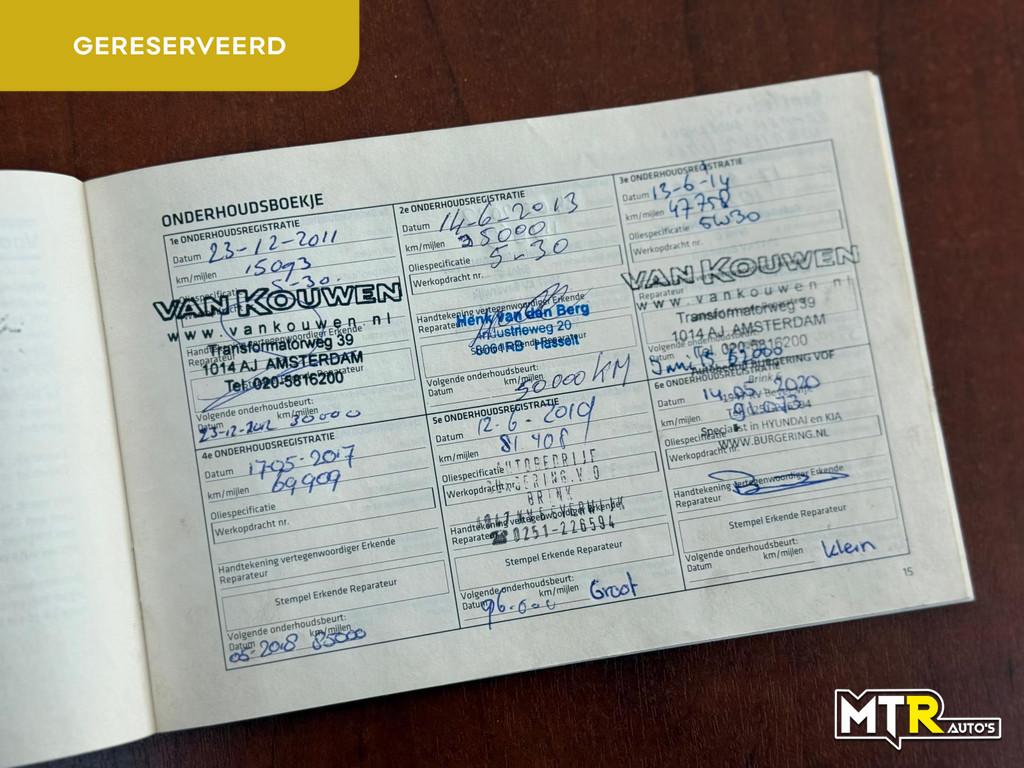 GERESERVEERD
ONDERHOUDSBOEKJE
1e ONDERHOUDSREGISTRATIE
Datum 23-12-2011
km/mijlen 15093
Oliespecificatie 5-30
VAN KOUWEN
www.vankouwen.nl
Transformatorweg 39
1014 AJ AMSTERDAM
Tel. 020-5816200
Reparateur
Volgende onderhoudsbeurt:
Datum km/mijlen
23-12-2012 30000
2e ONDERHOUDSREGISTRATIE
Datum 14-6-2013
km/mijlen 35000
Oliespecificatie 5-30
Werkopdracht nr.
Handtekening vertegenwoordiger Erkende
Reparateur
Henk van den Berg
Industrieweg 20
8061RB Hasselt
Volgende onderhoudsbeurt:
Datum km/mijlen
50000 KM
3e ONDERHOUDSREGISTRATIE
Datum 13-6-14
km/mijlen 47758
Oliespecificatie 5W30
Werkopdracht nr.
VAN KOUWEN
www.vankouwen.nl
Reparateur
Transformatorweg 39
1014 AJ AMSTERDAM
Tel. 020-5816200
4e ONDERHOUDSREGISTRATIE
Datum 17-05-2017
km/mijlen 69909
Oliespecificatie
Werkopdracht nr.
Handtekening vertegenwoordiger Erkende
Reparateur
Stempel Erkende Reparateur
Volgende onderhoudsbeurt:
Datum km/mijlen
05-2018 85000
5e ONDERHOUDSREGISTRATIE
Datum 12-6-2019
km/mijlen 81408
Oliespecificatie
Werkopdracht nr.
BRINK
☎0251-226594
Handtekening vertegenwoordiger Erkende
Reparateur
Stempel Erkende Reparateur
Volgende onderhoudsbeurt:
Datum km/mijlen
Groot
BURGERING VOF
6e ONDERHOUDSREGISTRATIE
Brink
Datum 14-05-2020
km/mijlen
Specialist in HYUNDAI en KIA
Oliespecificatie
WWW.BURGERING.NL
Werkopdracht nr.
Handtekening vertegenwoordiger Erkende
Reparateur
Stempel Erkende Reparateur
Volgende onderhoudsbeurt:
Datum km/mijlen
Klein
15
MTR AUTO'S